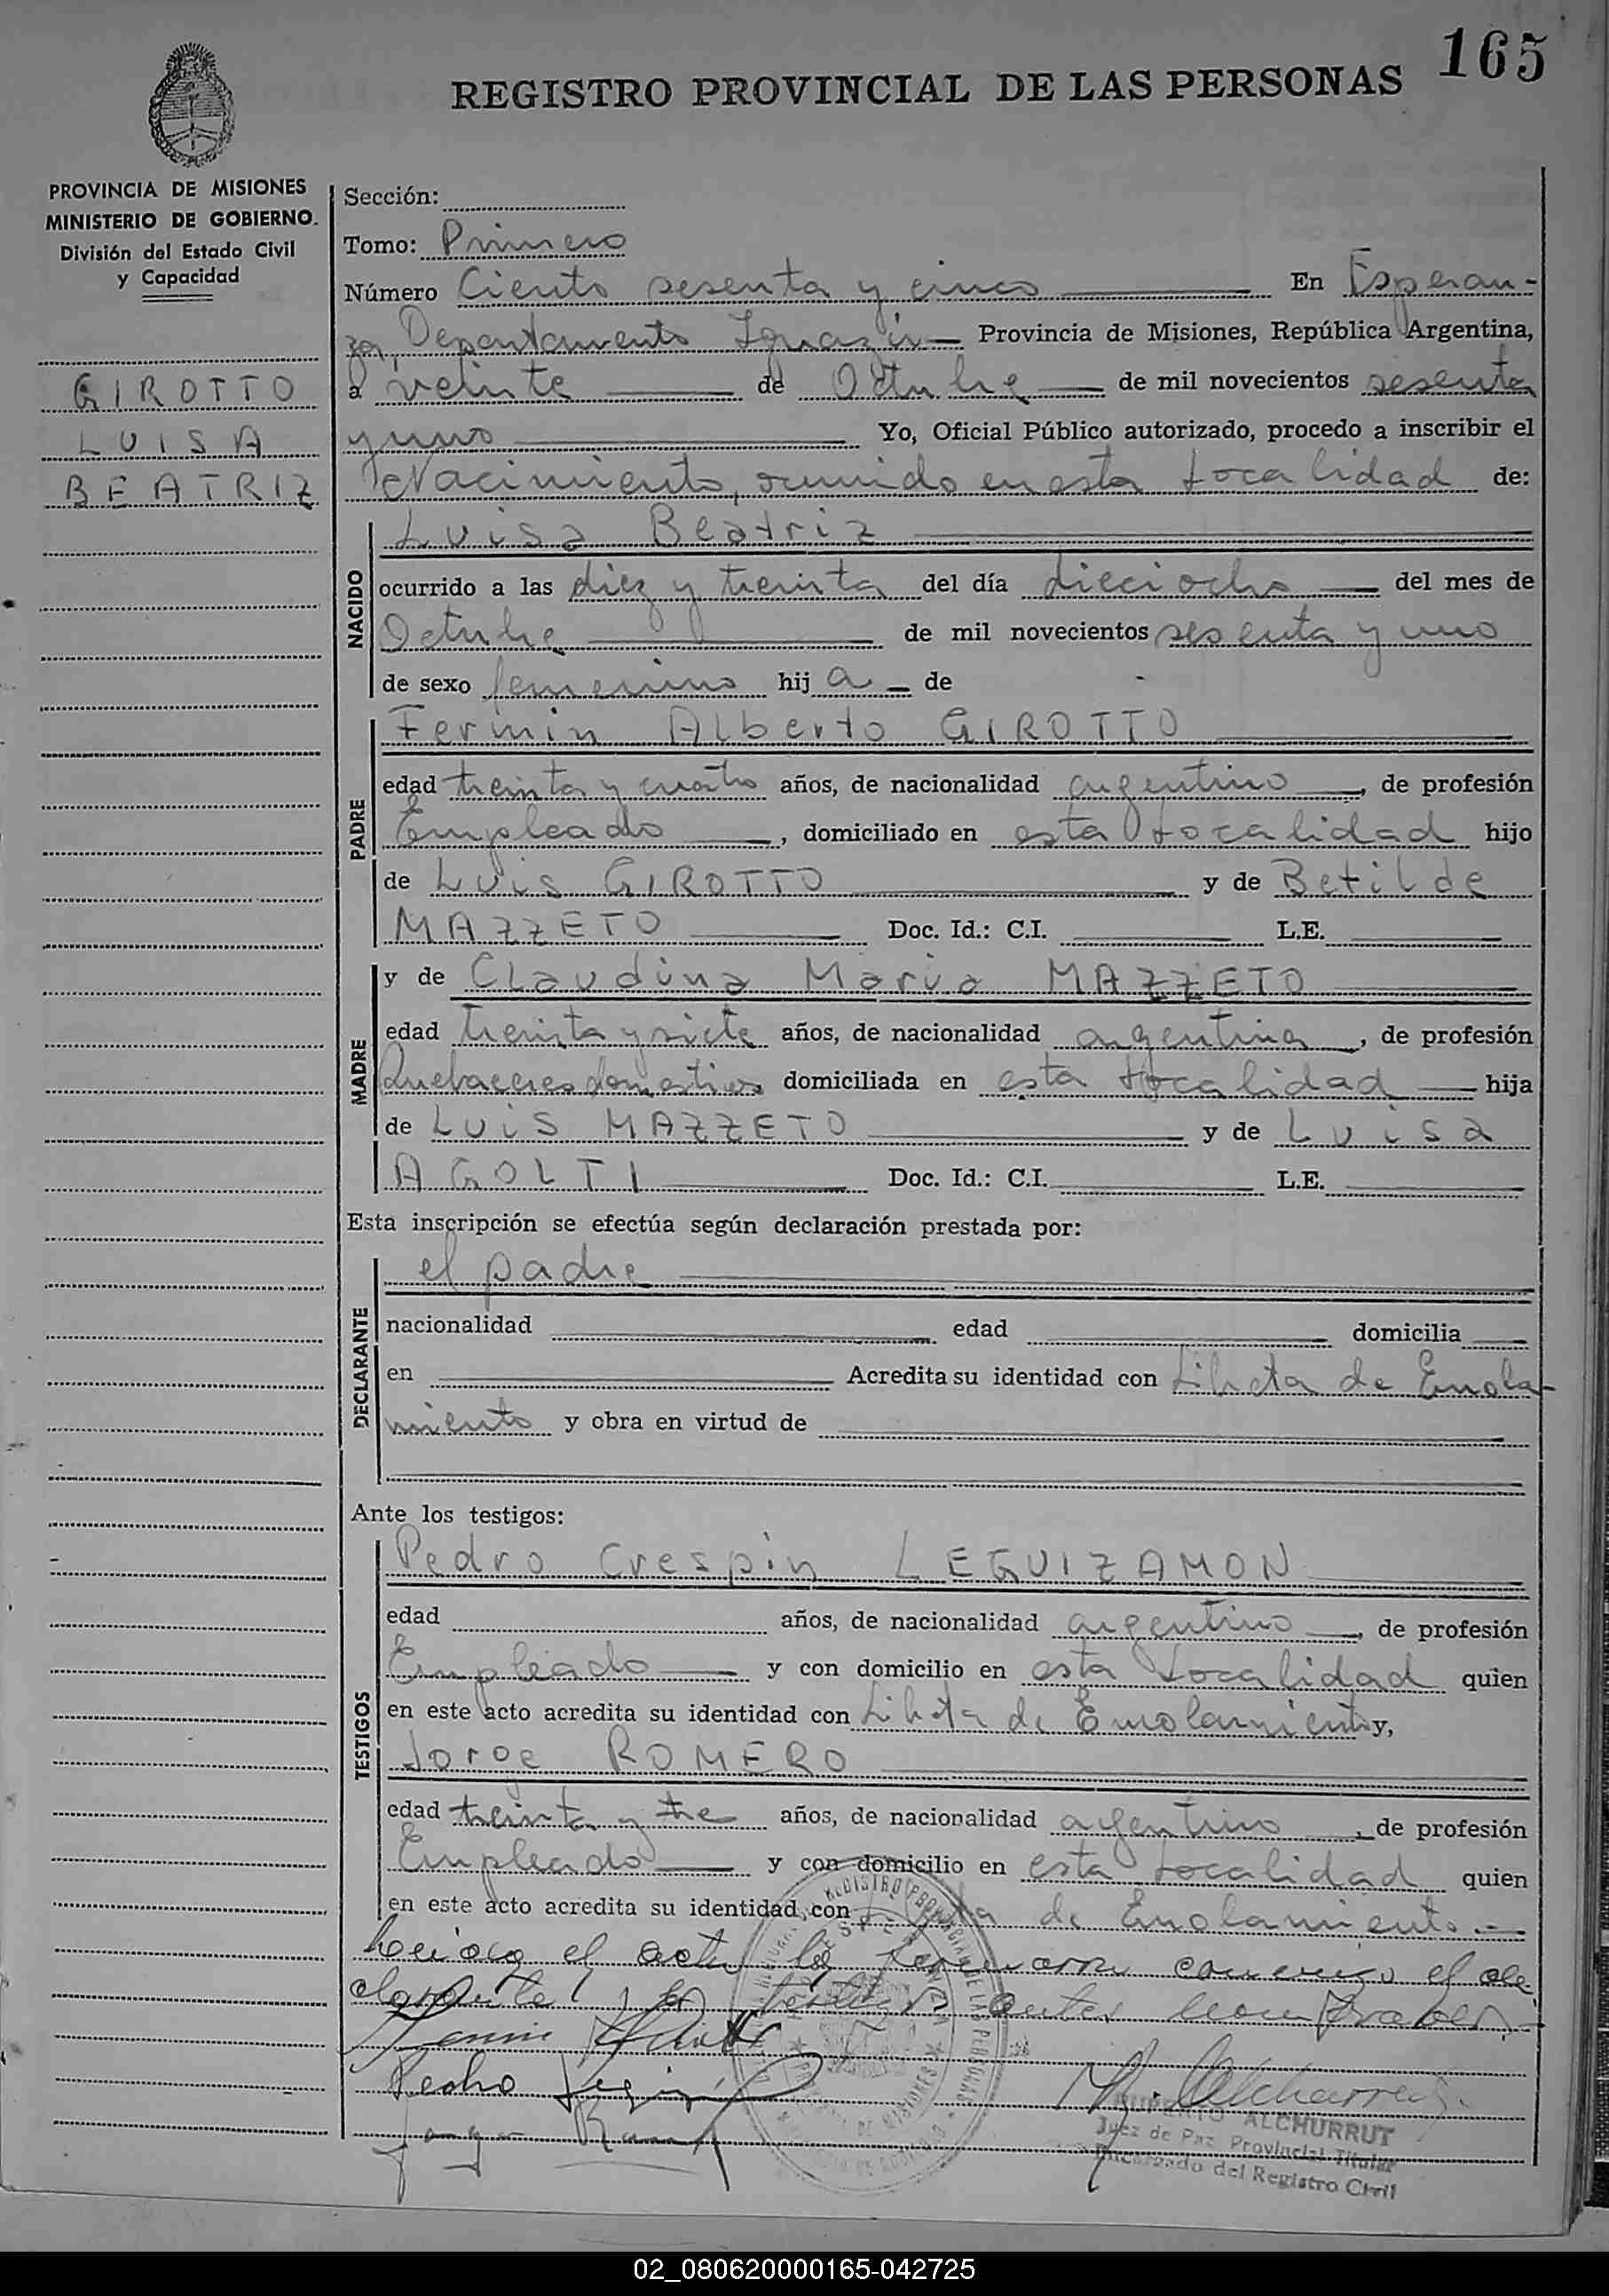 165
REGISTRO PROVINCIAL DE LAS PERSONAS
PROVINCIA DE MISIONES
MINISTERIO DE GOBIERNO.
División del Estado Civil
y Capacidad
GIROTTO
LUISA
BEATRIZ
Sección:
Tomo: Primero
Número Ciento sesenta y cinco En Esperan-
za, Departamento Iguazú Provincia de Misiones, República Argentina,
a veinte de Octubre de mil novecientos sesenta
y uno Yo, Oficial Público autorizado, procedo a inscribir el
Nacimiento, en esta Localidad de:
NACIDO
Luisa Beatriz
ocurrido a las diez y treinta del día dieciocho del mes de
Octubre de mil novecientos sesenta y uno
de sexo femenino hija de
PADRE
Fermin Alberto GIROTTO
edad treinta y cuatro años, de nacionalidad argentino, de profesión
Empleado, domiciliado en esta Localidad hijo
de Luis GIROTTO y de Betilde
MAZZETO Doc. Id.: C.I. L.E.
MADRE
y de Claudina Maria MAZZETO
edad treinta y siete años, de nacionalidad argentina, de profesión
Quehaceres domesticos domiciliada en esta Localidad hija
de Luis MAZZETO y de Luisa
AGOLTI Doc. Id.: C.I. L.E.
Esta inscripción se efectúa según declaración prestada por:
DECLARANTE
el padre
nacionalidad edad domicilia
en Acredita su identidad con Libreta de Enrola-
miento y obra en virtud de
Ante los testigos:
TESTIGOS
Pedro Crespin LEGUIZAMON
edad años, de nacionalidad argentino, de profesión
Empleado y con domicilio en esta Localidad quien
en este acto acredita su identidad con Libreta de Enrolamiento y,
Jorge ROMERO
edad treinta y tre años, de nacionalidad argentino, de profesión
Empleado y con domicilio en esta Localidad quien
en este acto acredita su identidad con Libreta de Enrolamiento.-
el acta la firmaron conmigo el de
clarante y los testigos antes nombrados.-
RUPERTO ALCHURRUT
Juez de Paz Provincial Titular
Encargado del Registro Civil
02_080620000165-042725